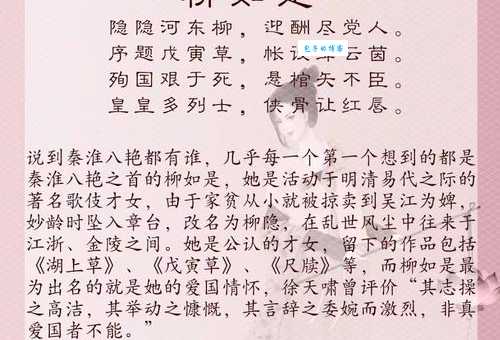 柳如是
隐隐河东柳,迎酬尽党人。
序题戊寅草,帐设
云茵。
包子的博客
殉国艰于死,悬棺矢不臣。
皇皇多烈士,侠骨让红唇。
说到秦淮八艳都有谁,几乎每一个第一个想到的都是
秦淮八艳之首的柳如是,她是活动于明清易代之际的
著名歌伎才女,由于家贫从小就被掠卖到吴江为婢,
妙龄时坠入章台,改名为柳隐,在乱世风尘中往来于
江浙、金陵之间。她是公认的才女,留下的作品包括
《湖上草》、《戊寅草》、《尺牍》等,而柳如是最
为出名的就是她的爱国情怀,徐天啸曾评价“其志操
之高洁,其举动之慷慨,其言辞之委婉而激烈,非真
爱国者不能。”